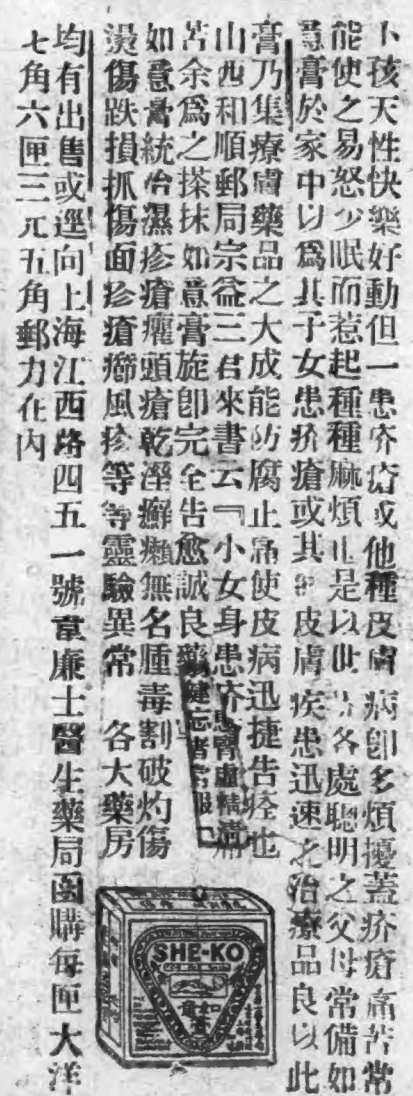 小孩天性快樂好動但一患疥瘡或他種皮膚病卽多煩擾蓋疥瘡痛苦常
能使之易怒少眠而惹起種種麻煩也是以世界各處聰明之父母常備如
意膏於家中以爲其子女患疥瘡或其他皮膚疾患迅速之治療品良以此
膏乃集療膚藥品之大成能防腐止痛使皮病迅捷告痊也
山西和順郵局宗益三君來書云『小女身患疥
苦余爲之搽抹如意膏旋卽完全告愈誠良藥
如意膏統治濕疹瘡癰頭瘡乾溼癬癩無名腫毒割破灼傷
燙傷跌損抓傷面疹瘡癤風疹等等靈驗異常 各大藥房
均有出售或逕向上海江西路四五一號韋廉士醫生藥局函購每匣大洋
七角六匣三元五角郵力在內
健忘者常服
SHE-KO
如意膏